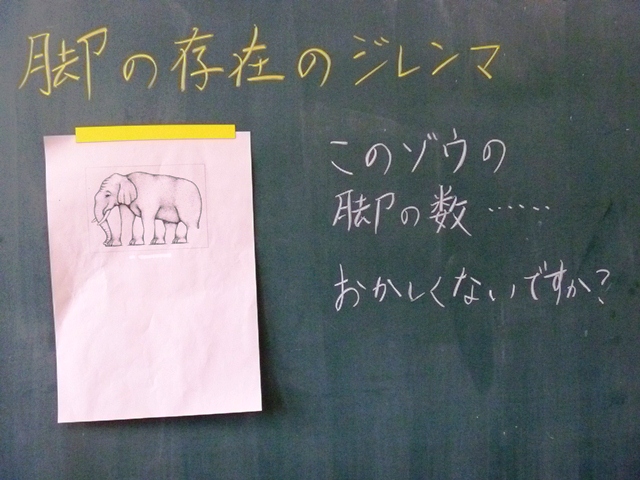 脚の存在のジレンマ
このゾウの
脚の数……
おかしくないですか?